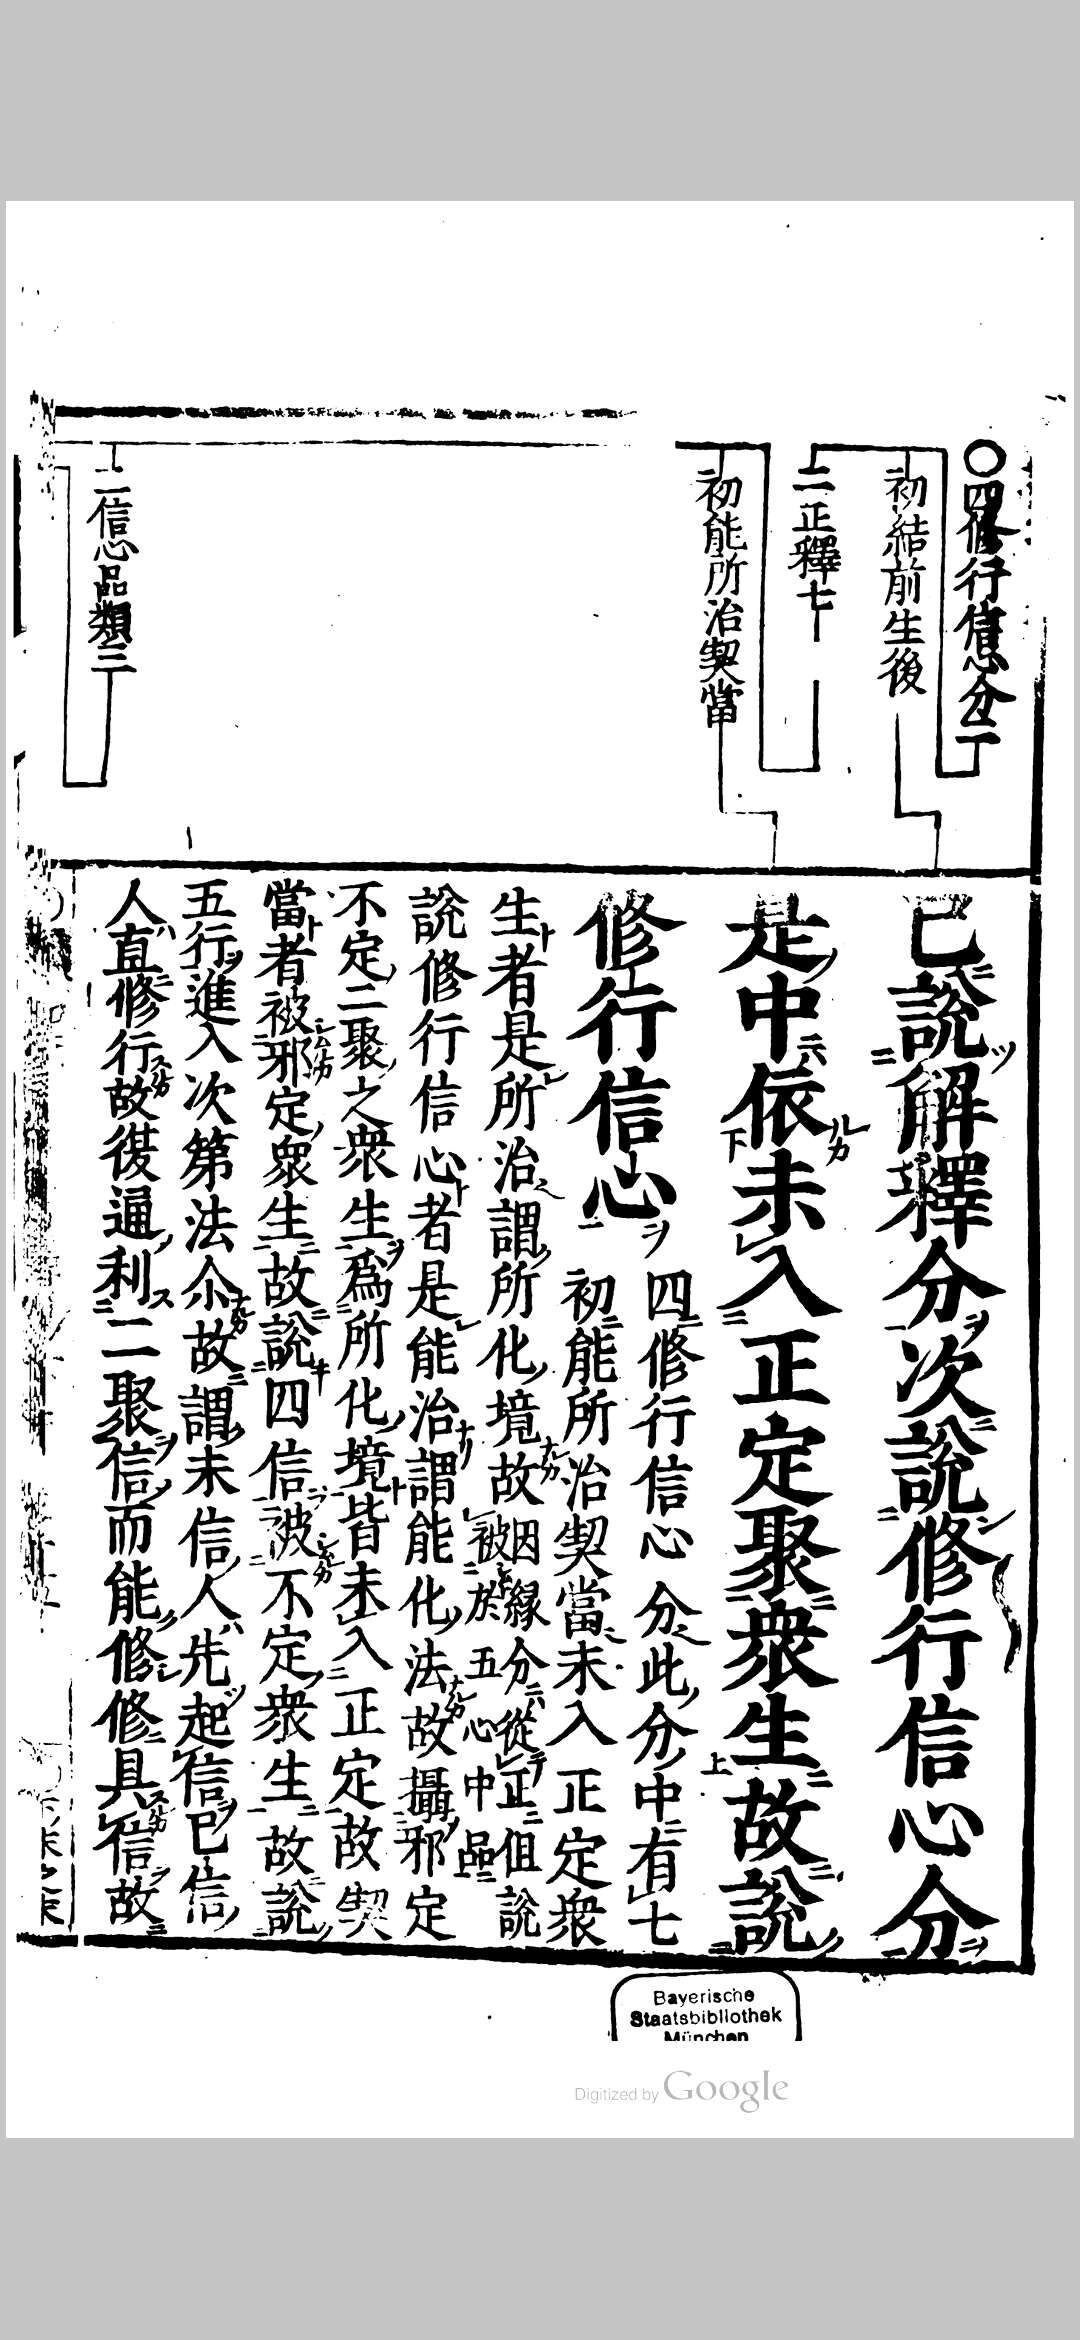 ○四修行信心分二
初結前生後
二正釋七
初能所治契當
二信心品類三
已說解釋分次說修行信心分
是中依未入正定聚衆生故說
修行信心
四修行信心分此分中有七
初能所治契當未入正定衆
生者是所治謂所化境故
因緣分從正但說
被於五心中品
說修行信心者是能治謂能化法故攝邪定
不定二聚之衆生爲所化境皆未入正定故契
當者被邪定衆生故說四信被不定衆生故說
五行進入次第法尒故謂未信人先起信已信
人直修行故復通利二聚信而能修修具信故
Bayerische
Staatsbibliothek
München
Digitized by Google